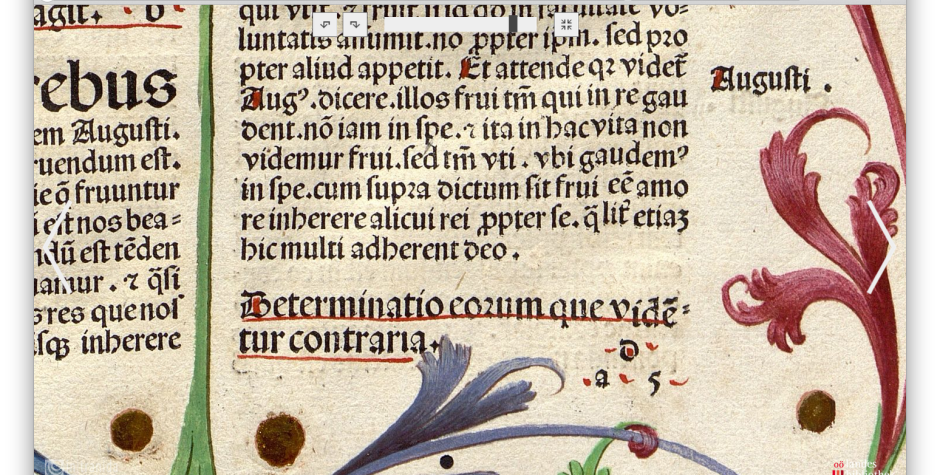 agit.
rebus
em Augusti.
ruendum est.
ie õ fruuntur
i est nos bea=
ndū est tēden
amur . ⁊ q̄si
s res que nos
isqꝫ inherere
qui vtit̃
luntatis assumit. no ꝓpter ipm̄. sed pro
pter aliud appetit. Et attende qꝛ videt̃
Augꝰ. dicere. illos frui tm̄ qui in re gau
dent. nō iam in spe. ⁊ ita in hac vita non
videmur frui. sed tm̄ vti . vbi gaudemꝰ
in spe. cum supra dictum sit frui eē̄ amo
re inherere alicui rei ꝓpter se. q̄lit̃ etiaꝫ
hic multi adherent deo .
Determinatio eorum que vidē=
tur contraria.
d
a 5
Augusti .